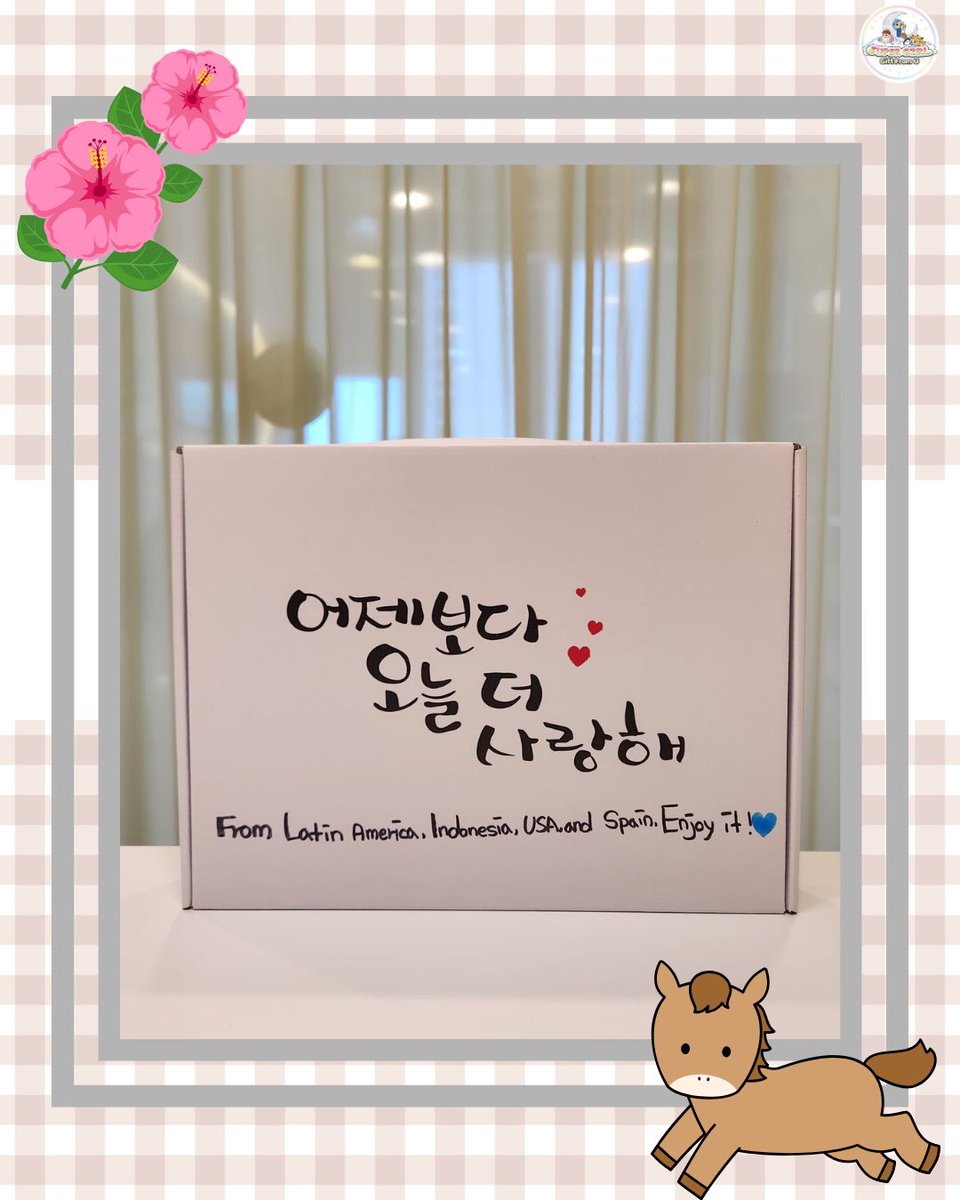 SUPER GIRL
Gift From U
어제보다
오늘 더
사랑해
From Latin America, Indonesia, USA, and Spain. Enjoy it!